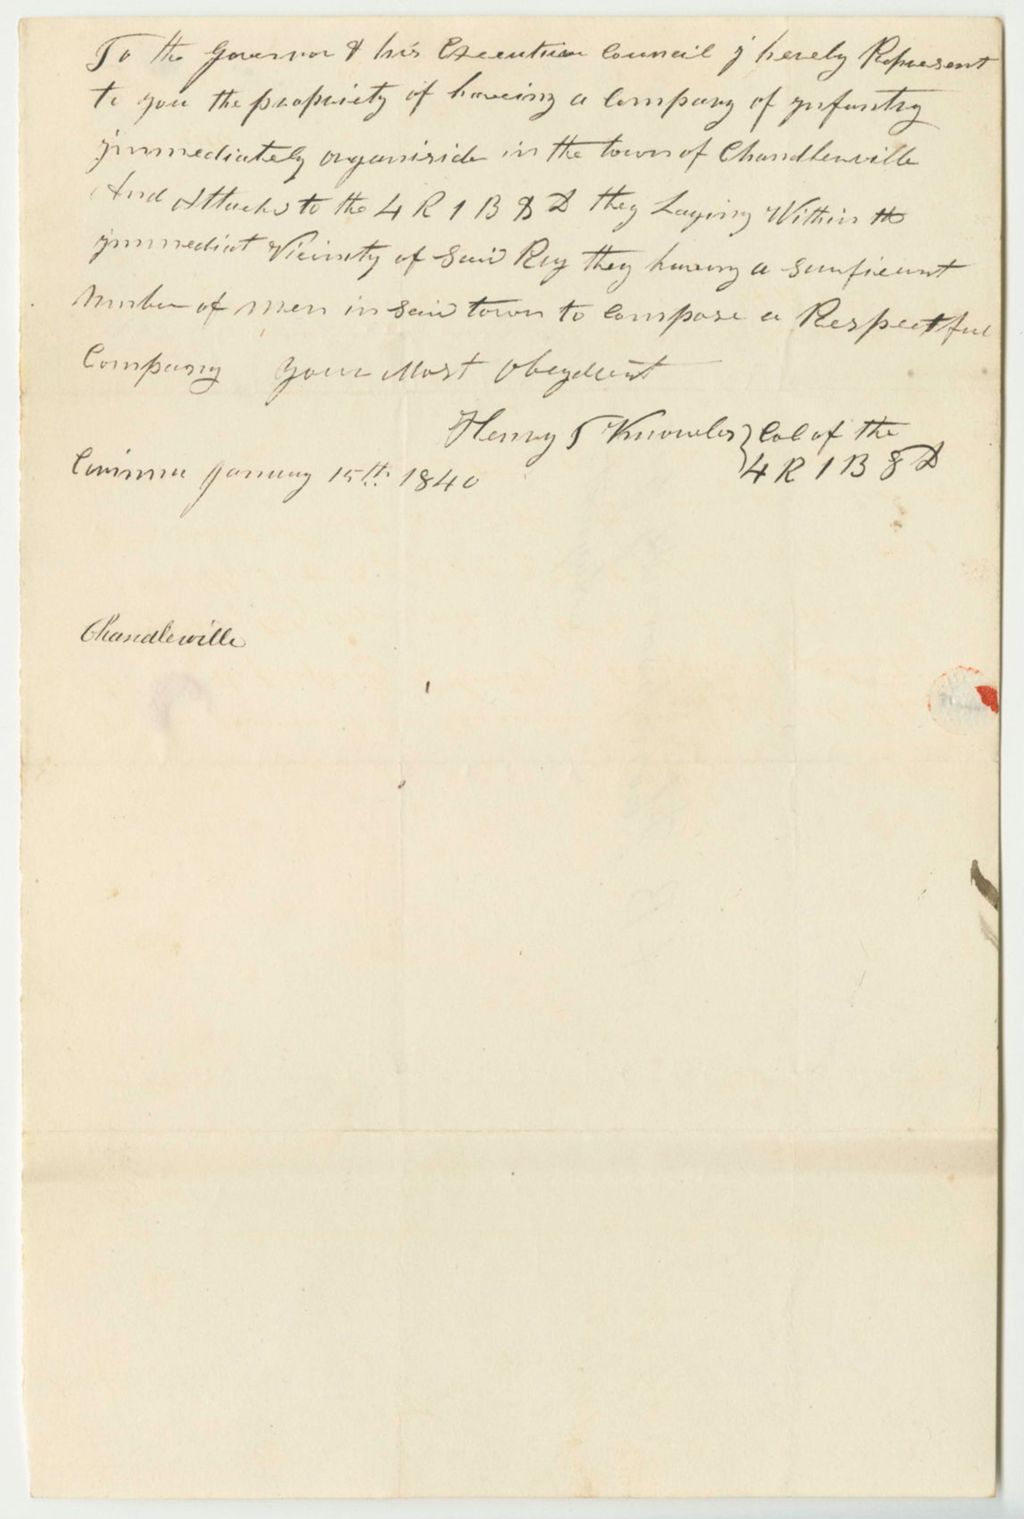 To the Governor & his Executive Council I hereby Represent
to you the propriety of haveing a Company of ynfantry
ymmediately organiside in the town of Chandlerville
And Attachd to the 4 R 1 B 8 D they Laying Within the
ymmediat Vicinity of Said Reg they having a sumficiunt
Number of men in said town to Compose a Respectful
Company Your Most Obeydient
Henry T Knowles } Col of the
4 R 1 B 8 D
Corinna January 15th. 1840
Chandleville